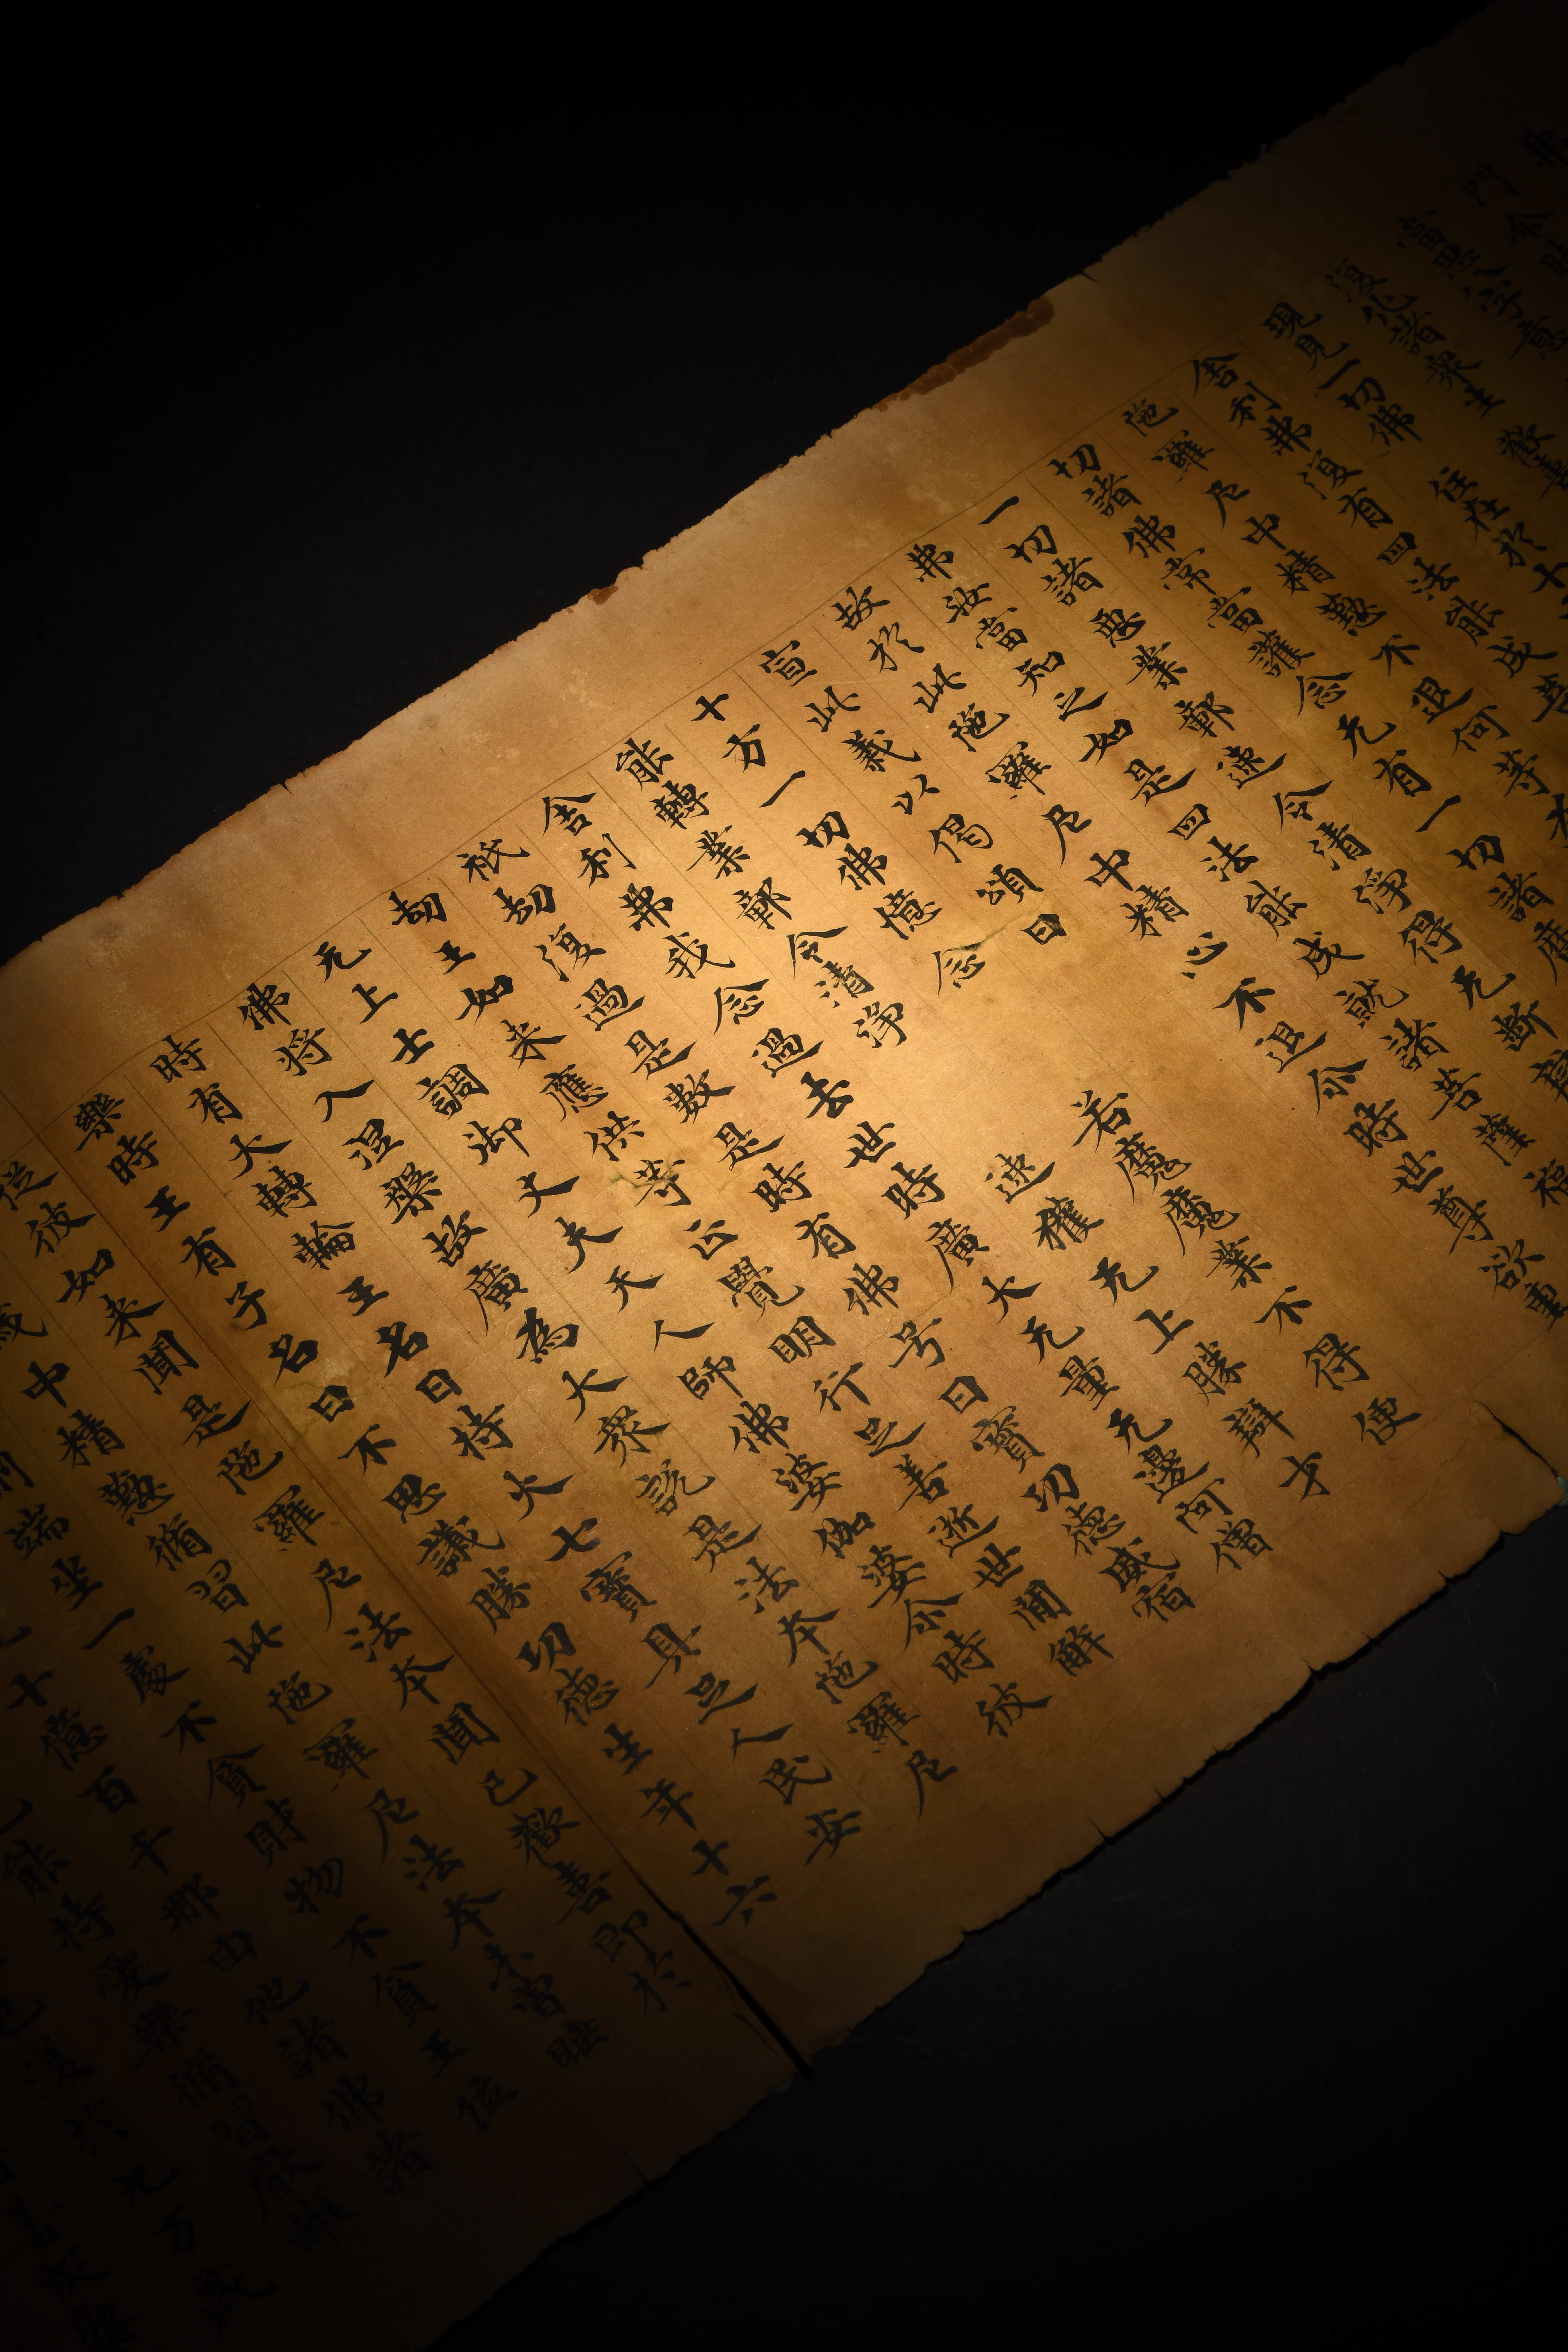 門
當思八字意
復化諸衆生 歡喜
現見一切佛 住在於十
舍利弗復有四法能成
陁羅尼中精懃不退何等
切諸佛常當護念无有一切諸魔
一切諸惡業鄣速令清淨得无斷辯
弗汝當知之如是四法能成就諸菩薩福
故於此陁羅尼中精心不退尒時世尊欲重
宣此義以偈頌曰
十方一切佛憶念 若魔魔業不得便
能轉業鄣令清淨 速獲无上勝辯才
舍利弗我念過去世時廣大无量无邊向僧
祇劫復過是數是時有佛号曰寶功德威宿
劫王如来應供等正覺明行足善逝世間解
无上士調御丈夫天人師佛婆伽婆尒時彼
佛將入涅槃故廣為大衆說是法本陁羅尼
時有大轉輪王名曰持火七寶具足人民安
樂時王有子名曰不思議勝功德生年十六
從彼如来聞是陁羅尼法本聞已歡喜即於
歲中精懃脩習此陁羅尼法本未嘗睡
端坐一處不貪財物不貪王位
十億百千那由他諸佛諸
能持愛樂脩習厭離
復於九万歲